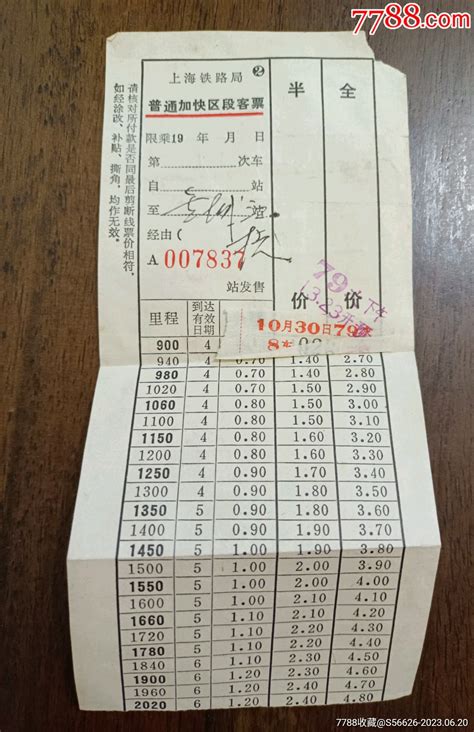 7788.com
中国收藏热线
上海铁路局 ②
普通加快区段客票
限乘19 年 月 日
第 次车
自 站
至 站
经由(
A 007837
站发售
半 价
全 价
请核对所付款是否同最后剪断线票价相符,
如经涂改、补贴、撕角,均作无效。
79
10月30日79
里程 到达有效日期
900 4
940 4 0.70 1.40 2.70
980 4 0.70 1.40 2.80
1020 4 0.70 1.50 2.90
1060 4 0.80 1.50 3.00
1100 4 0.80 1.50 3.10
1150 4 0.80 1.60 3.20
1200 4 0.80 1.60 3.30
1250 4 0.90 1.70 3.40
1300 4 0.90 1.80 3.50
1350 5 0.90 1.80 3.60
1400 5 0.90 1.90 3.70
1450 5 1.00 1.90 3.80
1500 5 1.00 2.00 3.90
1550 5 1.00 2.00 4.00
1600 5 1.00 2.10 4.10
1660 5 1.10 2.10 4.20
1720 5 1.10 2.20 4.30
1780 5 1.10 2.20 4.40
1840 6 1.10 2.30 4.50
1900 6 1.20 2.30 4.60
1960 6 1.20 2.40 4.70
2020 6 1.20 2.40 4.80
7788收藏@S56626-2023.06.20